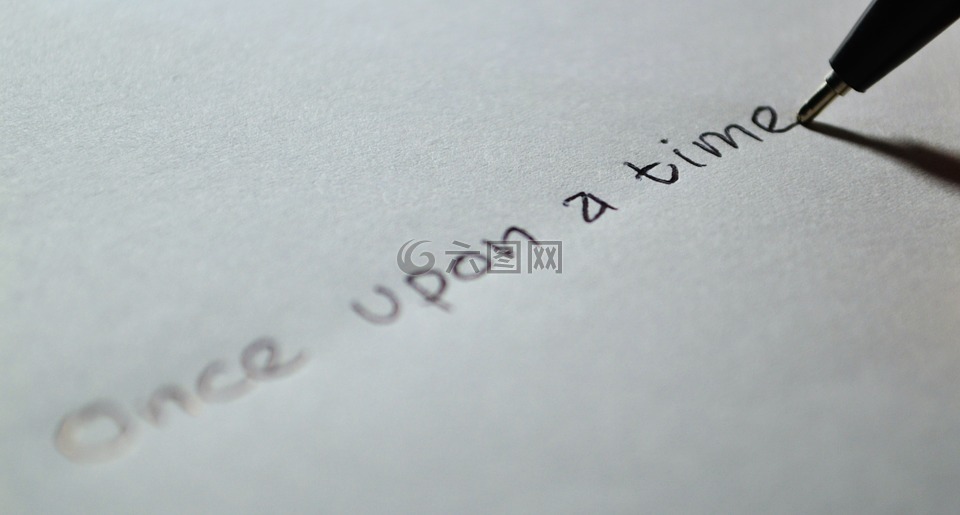 Once upon a time
六图网